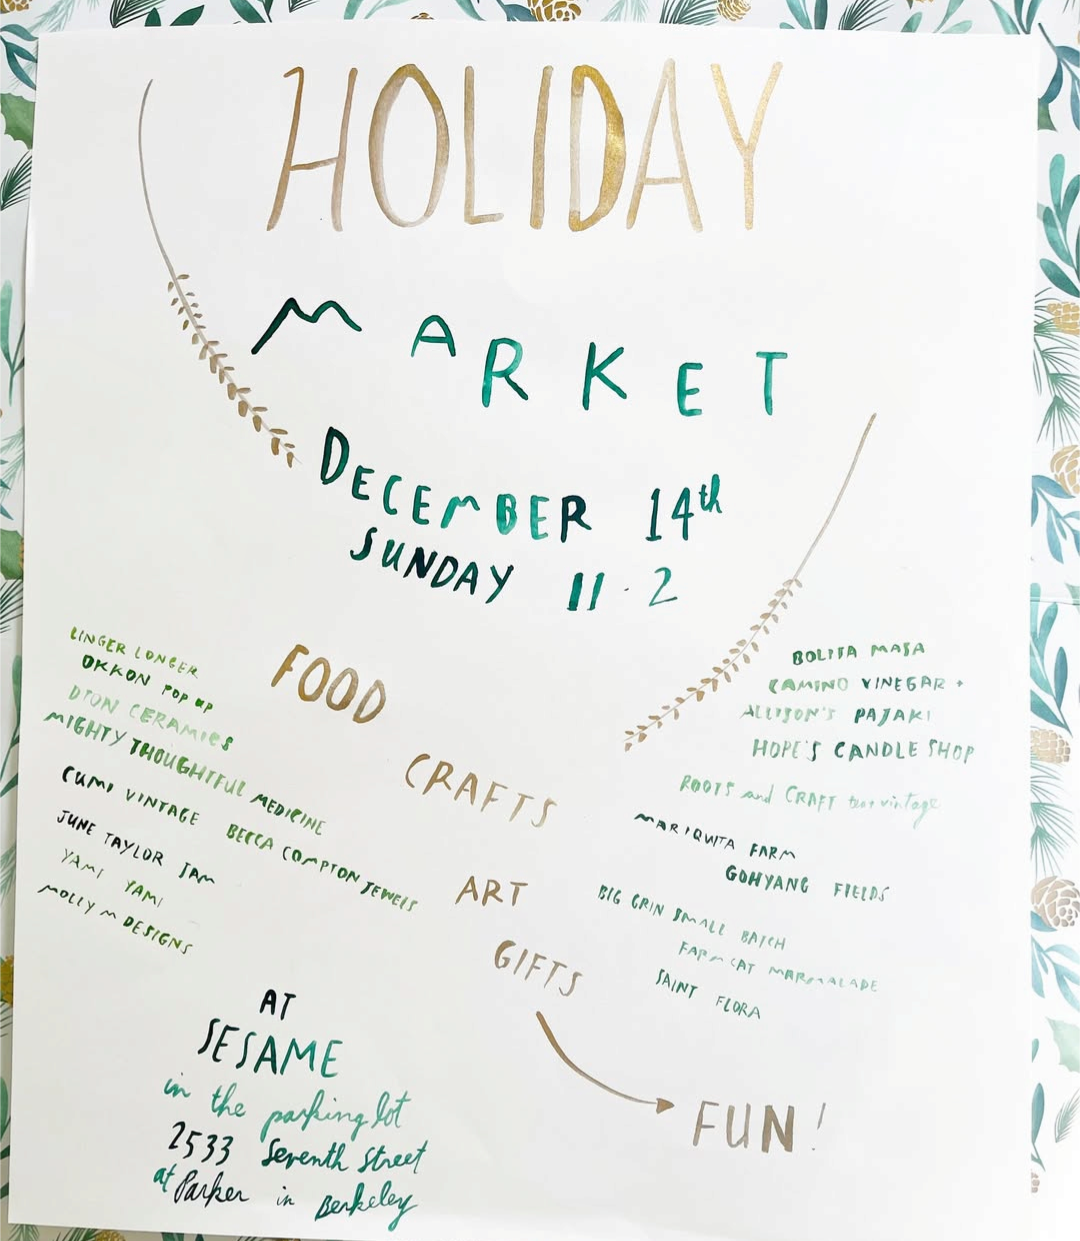 HOLIDAY
MARKET
DECEMBER 14th
SUNDAY 11·2
FOOD
CRAFTS
ART
GIFTS
FUN!
LINGER LONGER
OKKON POP UP
DION CERAMICS
MIGHTY THOUGHTFUL MEDICINE
CUMI VINTAGE
BECCA COMPTON JEWELS
JUNE TAYLOR JAM
YAMI YAMI
MOLLY M DESIGNS
BOLITA MASA
CAMINO VINEGAR +
ALLISON'S PAJAKI
HOPE'S CANDLE SHOP
ROOTS and CRAFT vintage
MARIQUITA FARM
GOHYANG FIELDS
BIG GRIN SMALL BATCH
FARMCAT MARMALADE
SAINT FLORA
AT
SESAME
in the parking lot
2533 Seventh Street
at Parker in Berkeley